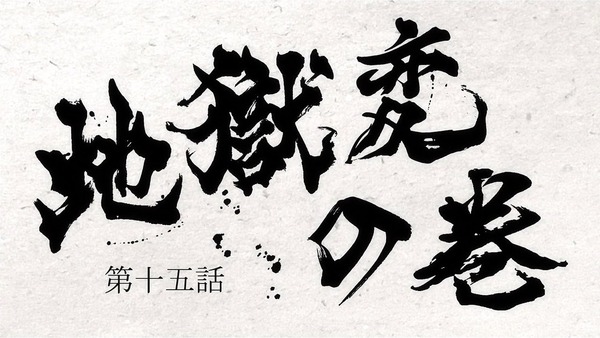 地獄変
の巻
第十五話